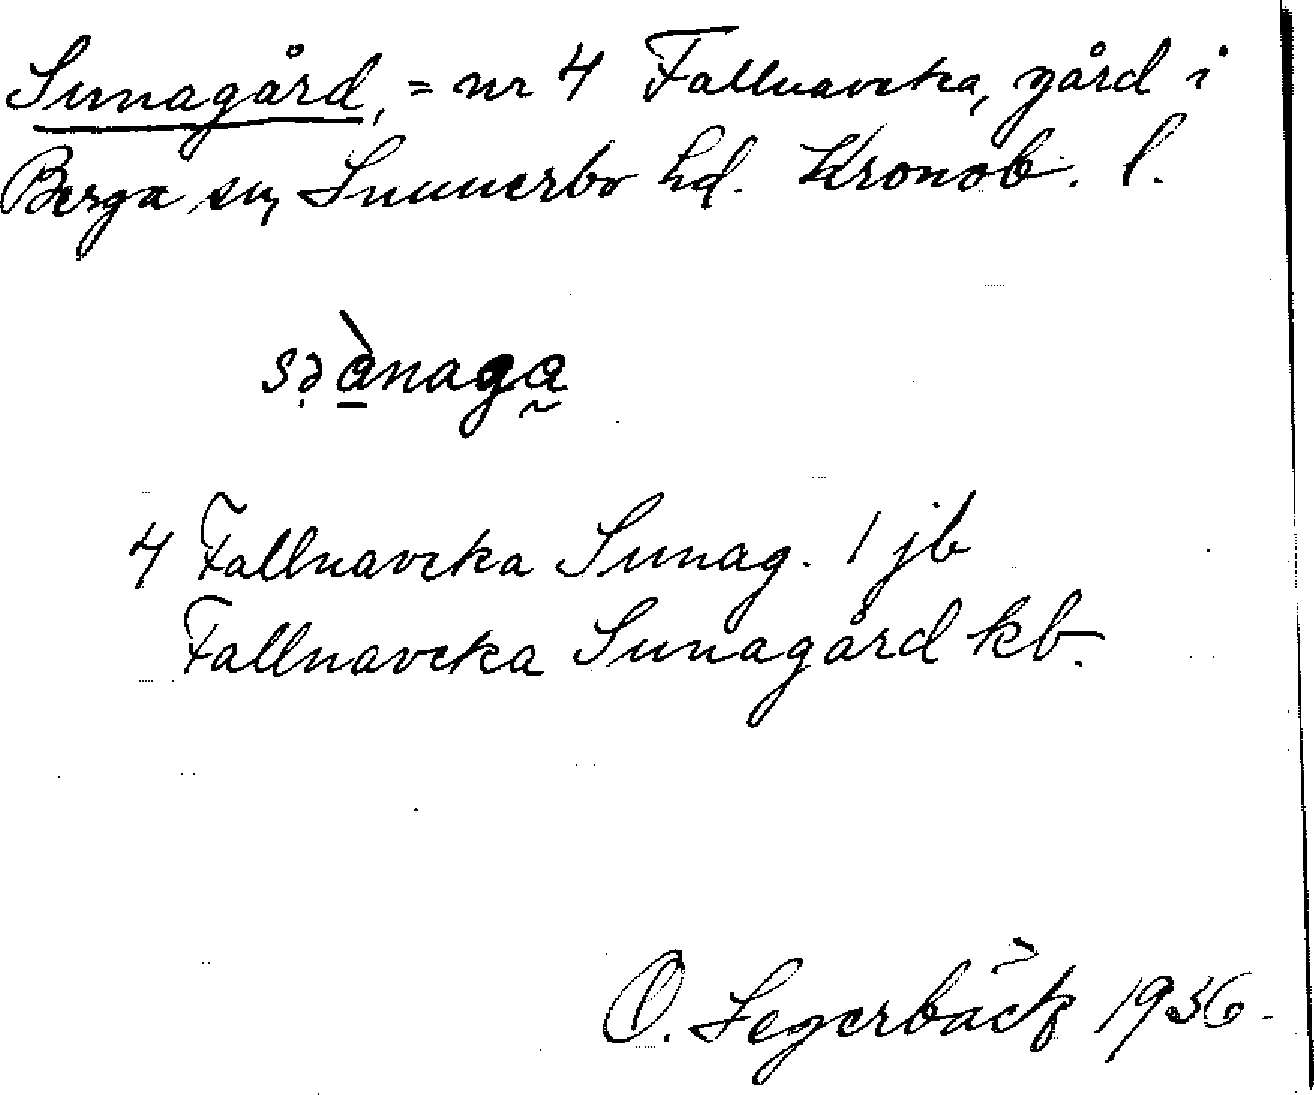 Sunagård, = nr 4 Fallnaveka, gård i
Berga sn, Sunnerbo hd. Kronob. l.
sə̣à̱naga̰
4 Fallnaveka Sunag. 1 jb
Fallnaveka Sunagård kb.
O. Segerbäck 1936.